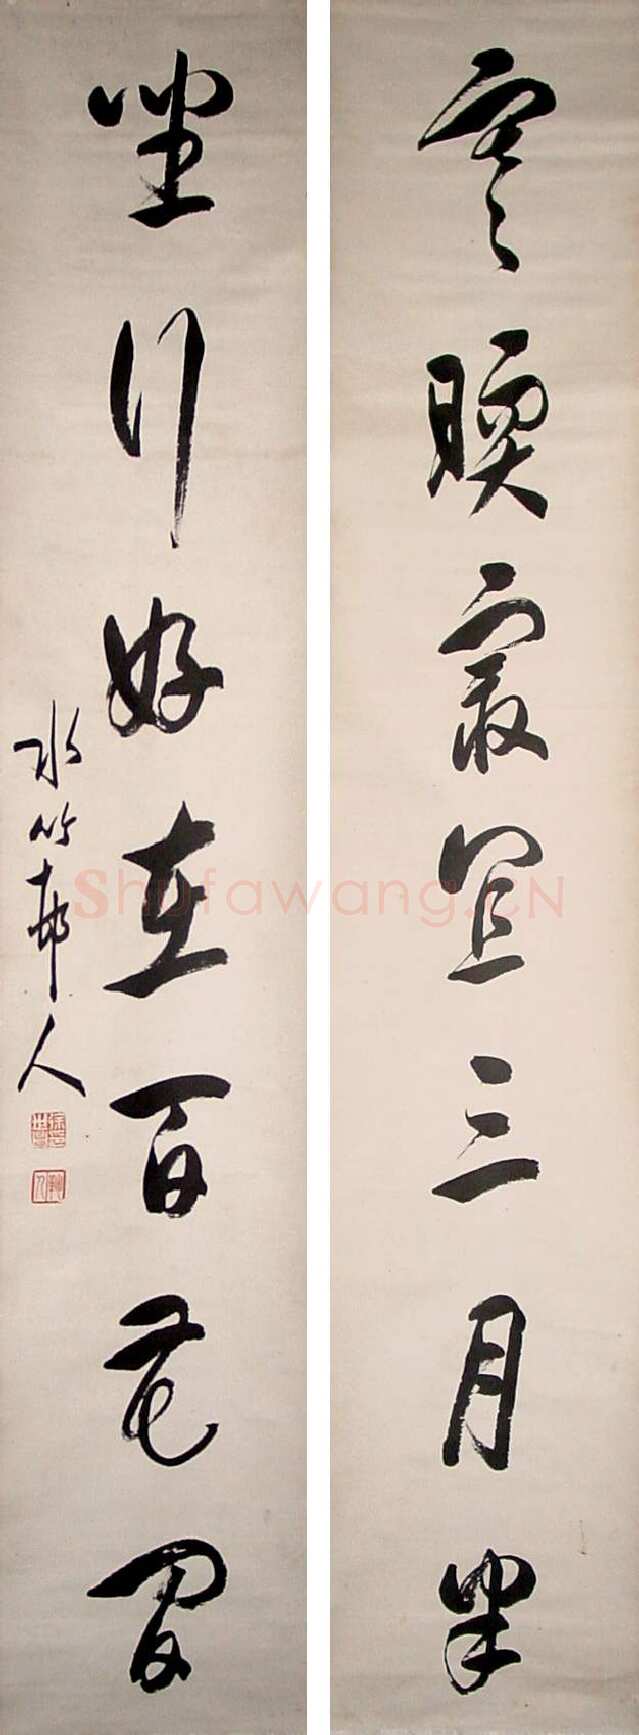 寒暖最宜三月半
坐行好在百花间
水竹邨人
Shufawang.CN